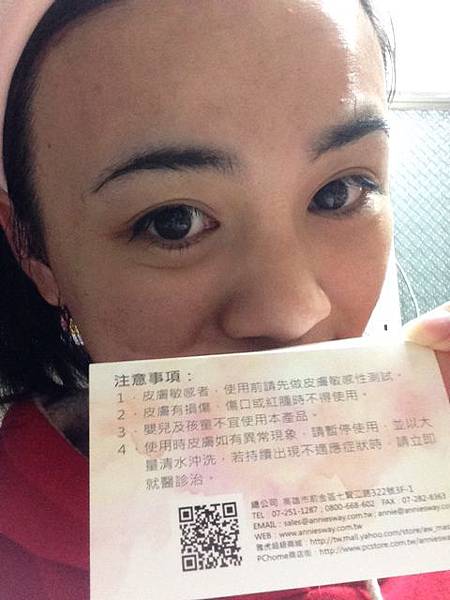 注意事項：
1．皮膚敏感者，使用前請先做皮膚敏感性測試。
2．皮膚有損傷，傷口或紅腫時不得使用。
3．嬰兒及孩童不宜使用本產品。
4．使用時皮膚如有異常現象，請暫停使用，並以大
量清水沖洗，若持續出現不適應症狀時，請立即
就醫診治。
總公司 高雄市前金區七賢二路322號3F-1
TEL：07-251-1287；0800-668-602 FAX：07-282-8363
EMAIL：sales@anniesway.com.tw；annie@anniesway.com
WEB：www.anniesway.com.tw
雅虎超級商城：http://tw.mall.yahoo.com/store/aw_mas
PChome商店街：http://www.pcstore.com.tw/anniesw